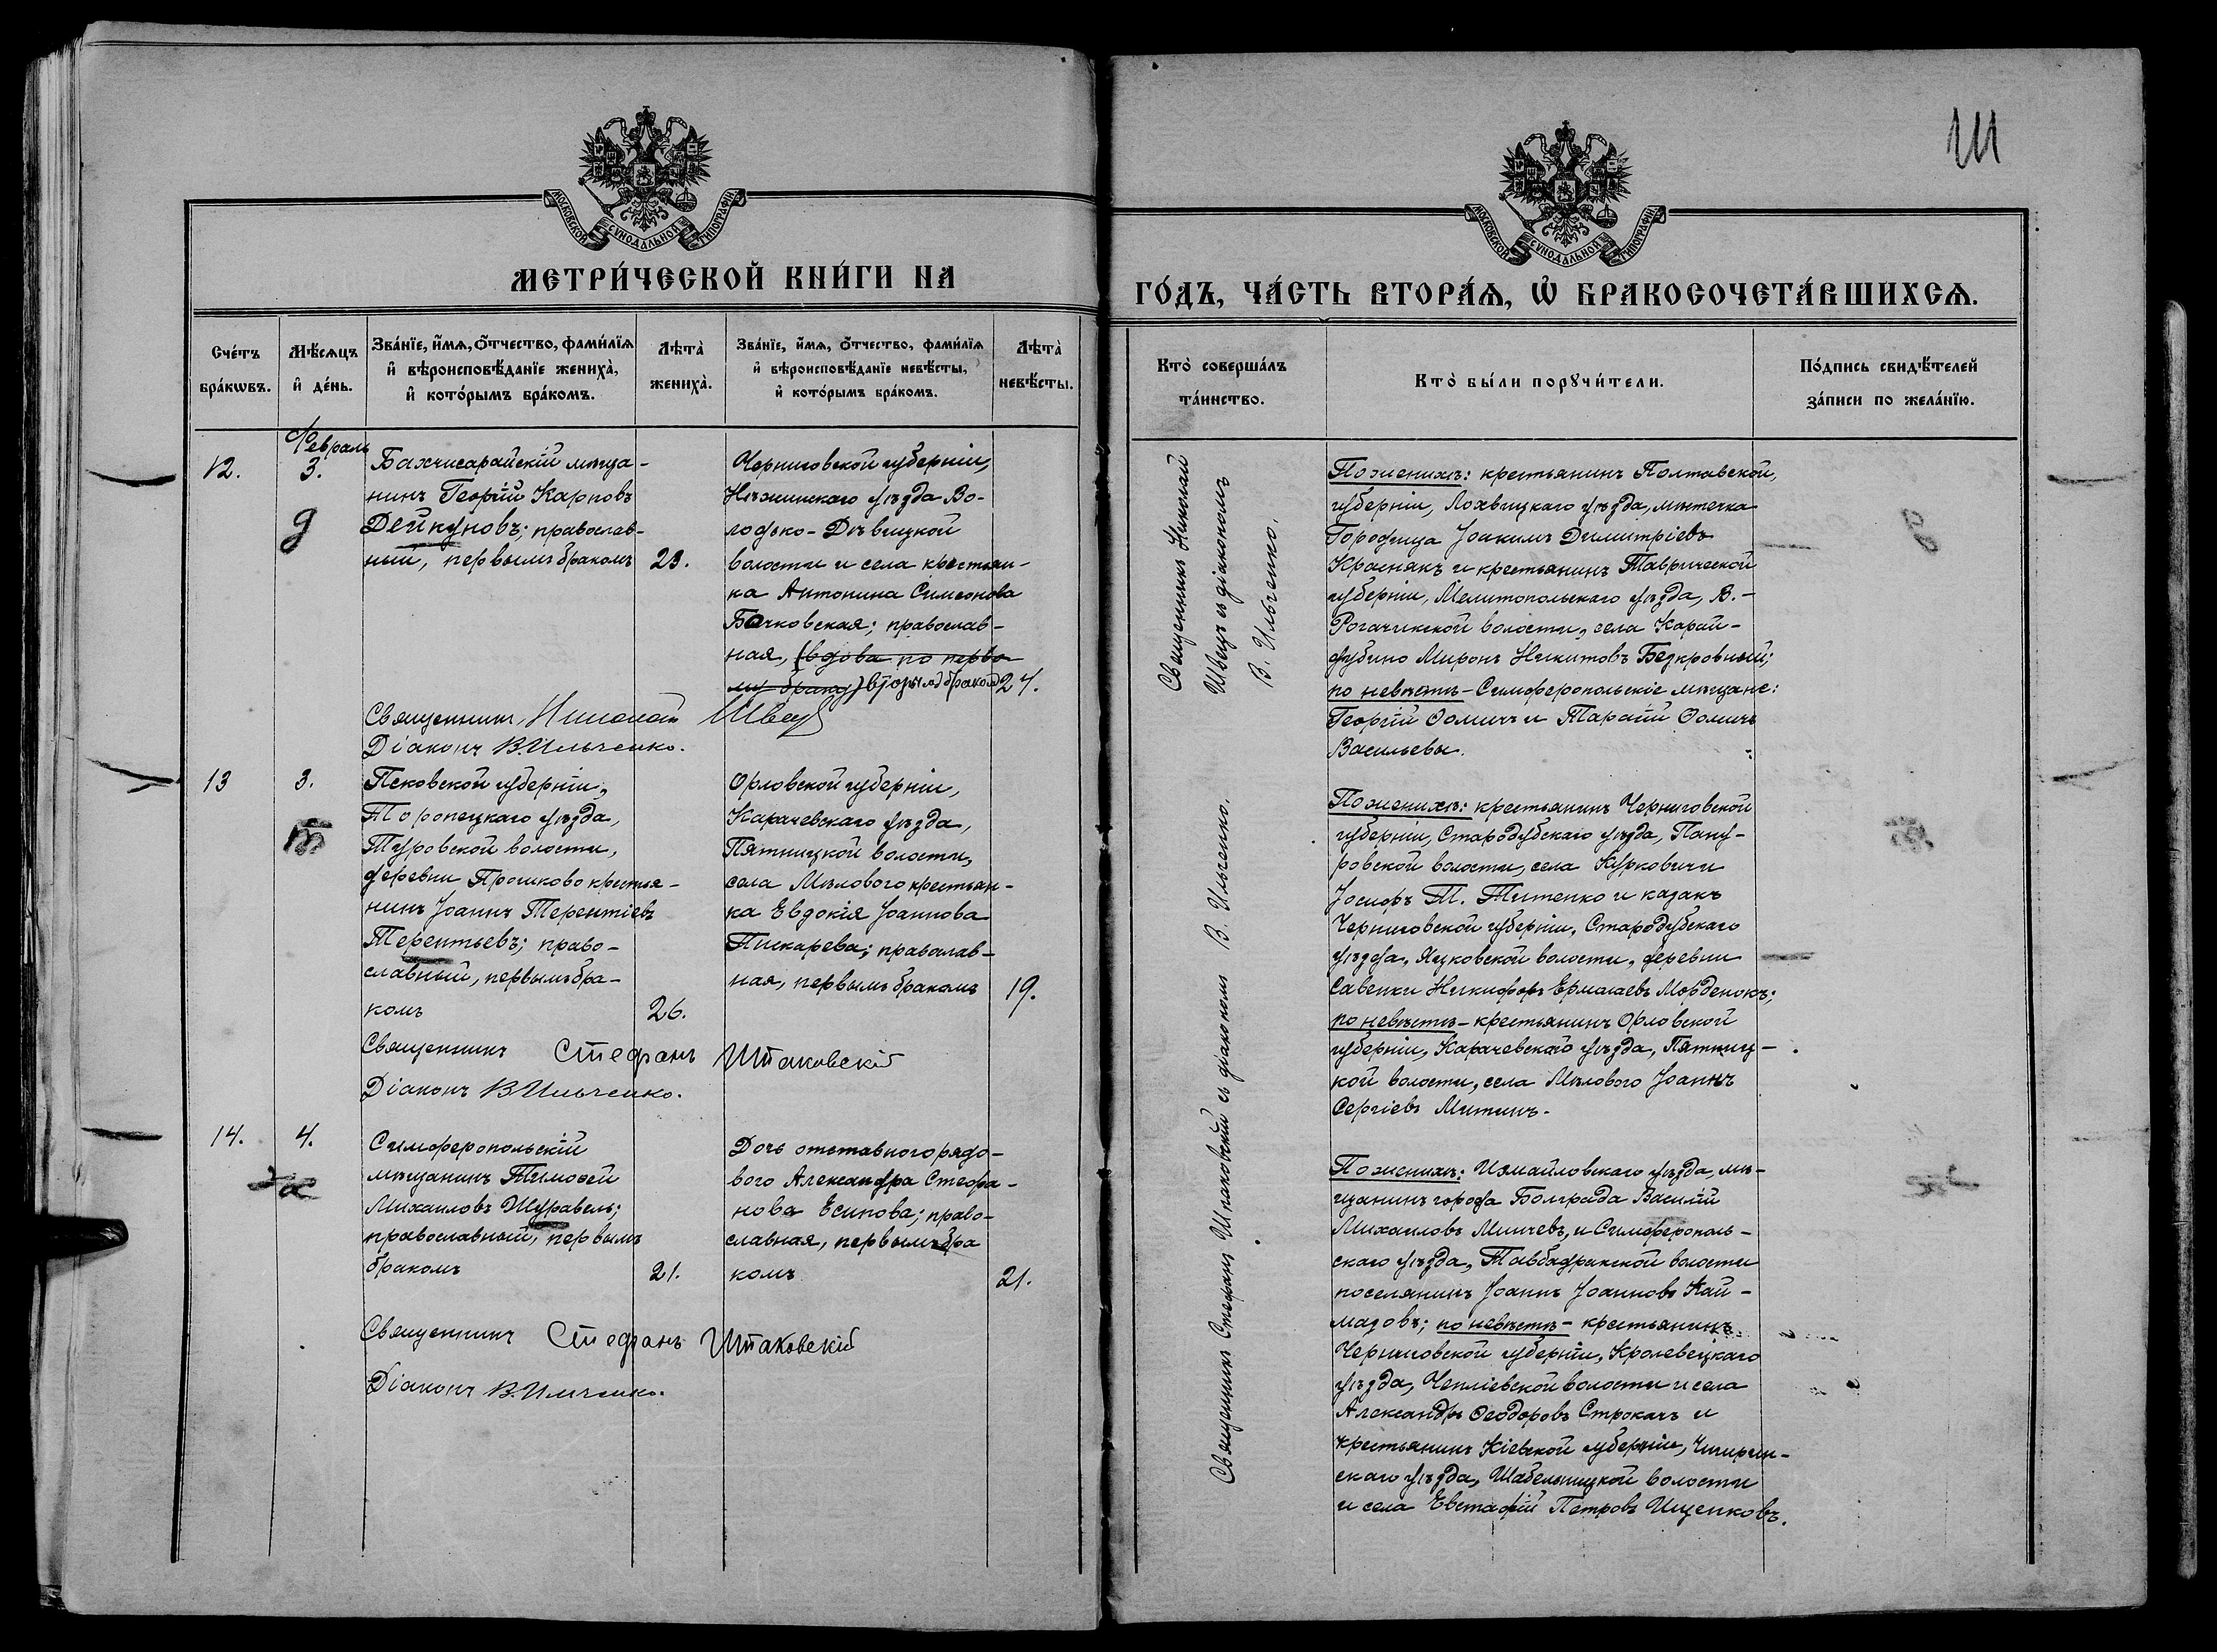 111
МОСКОВСКОЙ СѴНОДАЛЬНОЙ ТИПОГРАФІИ
МЕТРИ́ЧЕСКОЙ КНИ́ГИ НА
МОСКОВСКОЙ СѴНОДАЛЬНОЙ ТИПОГРАФІИ
ГО́ДЪ, ЧА́СТЬ ВТОРА́Ѧ, Ѡ҆ БРАКОСОЧЕТА́ВШИХСѦ.
Сче́тъ бра́кѡвъ.
Мѣ́сѧцъ и҆ де́нь.
Зва́нїе, и҆́мѧ, ѻ҆́тчество, фами́лїѧ
и҆ вѣроисповѣ́данїе жениха̀,
и҆ кото́рымъ бра́комъ.
Лѣта̀ жениха̀.
Зва́нїе, и҆́мѧ, ѻ҆́тчество, фами́лїѧ
и҆ вѣроисповѣ́данїе невѣ́сты,
и҆ кото́рымъ бра́комъ.
Лѣта̀ невѣ́сты.
Кто̀ соверша́лъ
та́инство.
Кто̀ бы́ли порꙋчи́тели.
По́дпись свидѣ́телей
за́писи по жела́нїю.
Февраль
12.
3.
Бахчисарайскій мѣща-
нинъ Георгій Карповъ
Дейкуновъ; православ-
ный, первымъ бракомъ
23.
Черниговской губерніи,
Нѣжинскаго уѣзда Во-
лодько-Дѣвицкой
волости и села крестьян-
ка Антонина Симеонова
Бачковская; православ-
ная, (вдова по перво-
му браку) вторымъ бракомъ
27.
Священникъ Николай Швецъ
Діаконъ В. Ильченко.
Священникъ Николай
Швецъ съ діакономъ
В. Ильченко.
По женихѣ: крестьянинъ Полтавской
губерніи, Лохвицкаго уѣзда, мѣстечка
Городища Іоакимъ Димитріевъ
Краснякъ и крестьянинъ Таврической
губерніи, Мелитопольскаго уѣзда, В.-
Рогачикской волости, села Карай-
дубино Миронъ Никитовъ Безкровный;
по невѣстѣ - Симферопольскіе мѣщане:
Георгій Ѳоминъ и Тарасій Ѳоминъ
Васильевы.
13
3.
Псковской губерніи,
Торопецкаго уѣзда,
Туровской волости,
деревни Прошково крестья-
нинъ Іоаннъ Терентіевъ
Терентьевъ; право-
славный, первымъ бра-
комъ
26.
Орловской губерніи,
Карачевскаго уѣзда,
Пятницкой волости,
села Мѣлового крестьян-
ка Евдокія Іоаннова
Пискарева; православ-
ная, первымъ бракомъ
19.
Священникъ Стефанъ Шпаковскій
Діаконъ В. Ильченко.
Священникъ Стефанъ Шпаковскій съ діакономъ В. Ильченко.
По женихѣ: крестьянинъ Черниговской
губерніи, Стародубскаго уѣзда, Пану-
ровской волости, села Курковичи
Іосифъ Т. Титенко и казакъ
Черниговской губерніи, Стародубскаго
уѣзда, Яцковской волости, деревни
Савенки Никифоръ Ермолаевъ Морденокъ;
по невѣстѣ - крестьянинъ Орловской
губерніи, Карачевскаго уѣзда, Пятниц-
кой волости, села Мѣлового Іоаннъ
Сергіевъ Митинъ.
14.
4.
Симферопольскій
мѣщанинъ Тимоѳей
Михаиловъ Журавель;
православный, первымъ
бракомъ
21.
Дочь отставного рядо-
вого Александра Стефа-
нова Есипова; право-
славная, первымъ бра
комъ
21.
Священникъ Стефанъ Шпаковскій
Діаконъ В. Ильченко.
По женихѣ: Измайловскаго уѣзда, мѣ-
щанинъ города Болграда Василій
Михаиловъ Минчевъ, и Симферополь-
скаго уѣзда, Тавбадракской волости
поселянинъ Іоаннъ Іоанновъ Кай-
мазовъ; по невѣстѣ - крестьянинъ
Черниговской губерніи, Кролевецкаго
уѣзда, Чепліевской волости и села
Александръ Ѳеодоровъ Строкачъ и
крестьянинъ Кіевской губерніи, Чигирин-
скаго уѣзда, Шабельницкой волости
и села Евстафій Петровъ Ищенковъ.